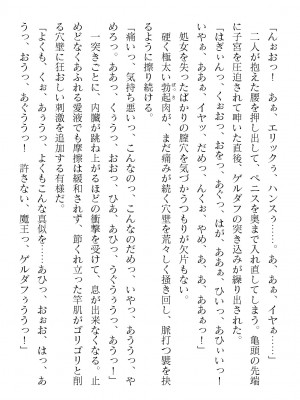 「んぉおっ！　あぁ、エリックぅ、ハンスぅ……。あ、あぁ、イヤぁ……」
　二人が抱えた腰を押し出して、ペニスを奥まで入れ直してしまう。亀頭の先端
に子宮を圧迫されて呻いた直後、ゲルダフの突き込みが繰り出された。
「はぎぃんっ、くぉおっ、おをっ、あぐっ、はが、ああぁ、ひいっ、あひいぃい！
いやぁ、あぁぁっ、イヤッ、だめっ、んくぉ、やめ、あ、あ、あああっ！」
　処女を失ったばかりの膣穴を気づかうつもりが欠片もない。
　硬く極太い勃起肉が、まだ痛みが続く穴壁を荒々しく掻き回し、脈打つ襞を抉
るように擦り続ける。
「痛いっ、気持ち悪いぃっ、こんなのっ、こんなのだめっ、いやっ、あううっ、や
めろっ。ああっ、くぅううっ、おおっ、ひあ、あひっ、うぐぅぅううっ」
　一突きごとに、内臓が跳ね上がるほどの衝撃を受けて、息が出来なくなる。止
めどなくあふれる愛液でも摩擦は緩和されず、節くれ立った竿肌がゴリゴリと削
る穴壁に狂おしい刺激を追加する有様だ。
「よくも、くぉ、あぅうっ　よくもこんな真似を……あひっ、おぉお、はっ、あ
うっ、おうっ、あくううっ！　許さない、魔王っ、ゲルダフぅううっ！」